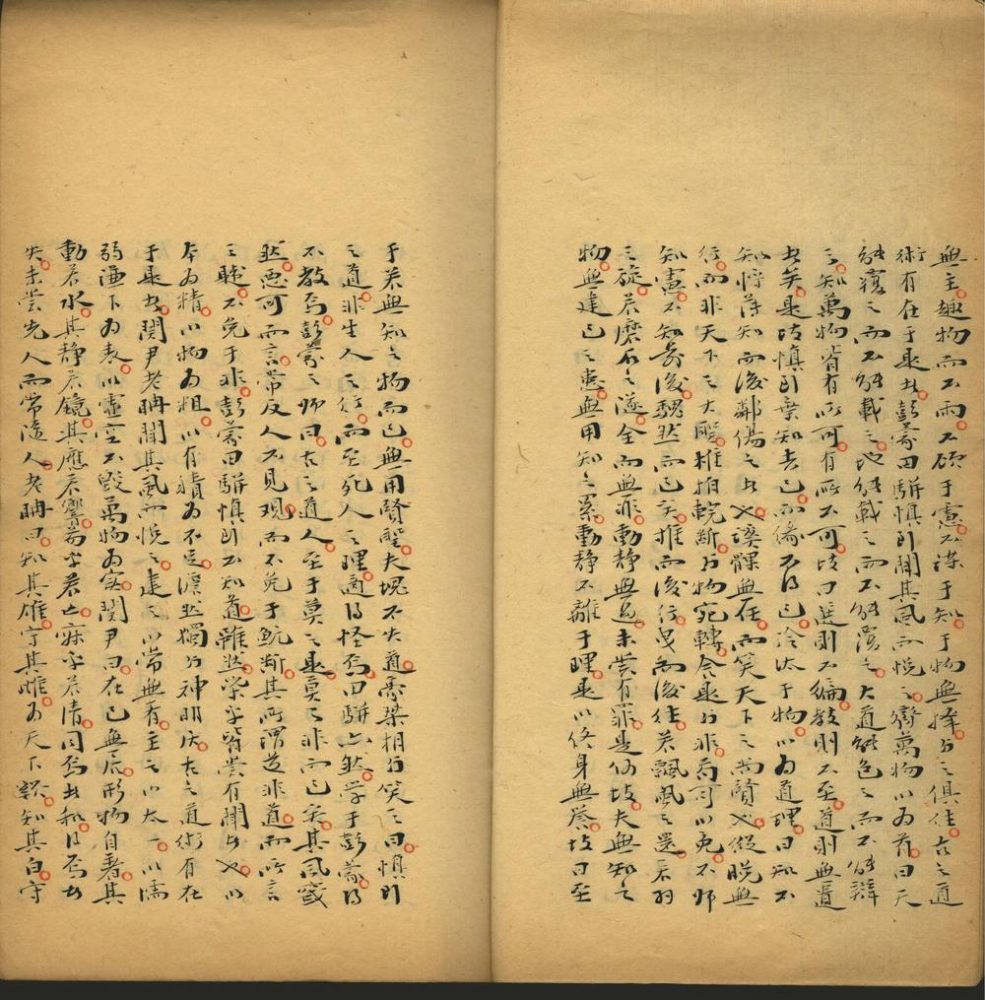 無主趣物而不兩不顧于慮不謀于知于物無擇與之俱往古之道
術有在于是者彭蒙田駢慎到聞其風而悅之齊萬物以為首曰天
能覆之而不能載之地能載之而不能覆之大道能包之而不能辯
之知萬物皆有所可有所不可故曰選則不徧教則不至道則無遺
者矣是故慎到棄知去己而緣不得已冷汰于物以為道理曰知不
知將薄知而後鄰傷之者也謑髁無任而笑天下之尚賢也縱脫無
行而非天下之大聖椎拍輐斷與物宛轉舍是與非苟可以免不師
知慮不知前後魏然而已矣推而後行曳而後往若飄風之還若羽
之旋若磨石之隧全而無非動靜無過未嘗有罪是何故夫無知之
物無建己之患無用知之累動靜不離于理是以終身無譽故曰至
于若無知之物而已無用賢聖夫塊不失道豪桀相與笑之曰慎到
之道非生人之行而至死人之理適得怪焉田駢亦然學于彭蒙得
不教焉彭蒙之師曰古之道人至于莫之是莫之非而已矣其風窢
然惡可而言常反人不見觀而不免于魭斷其所謂道非道而所言
之韙不免于非彭蒙田駢慎到不知道雖然槩乎皆嘗有聞者也以
本為精以物為粗以有積為不足澹然獨與神明居古之道術有在
于是者關尹老聃聞其風而悅之建之以常無有主之以太一以濡
弱謙下為表以虛空不毀萬物為實關尹曰在己無居形物自著其
動若水其靜若鏡其應若響芴乎若亡寂乎若清同焉者和得焉者
失未嘗先人而常隨人老聃曰知其雄守其雌為天下谿知其白守